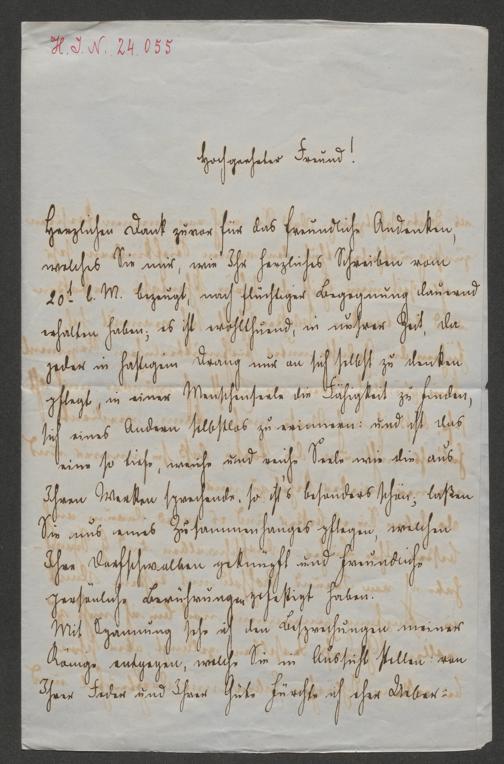 H. I. N. 24 055
Hochgeehrter Freund!
Herzlichen Dank zuvor für das freundliche Andenken,
welches Sie mir, wie Ihr herzliches Schreiben vom
20t l. M. bezeugt, nach flüchtiger Begegnung dauernd
erhalten haben; es ist wohlthuend, in unsrer Zeit, da
jeder in hastigem Drang nur an sich selbst zu denken
pflegt, in einer Menschenseele die Fähigkeit zu finden,
sich eines Andern selbstlos zu erinnern: und ist das
eine so tiefe, weiche und reiche Seele wie die aus
Ihren Werken sprechende, so ist's besonders schön; laßen
Sie uns eines Zusammenhanges pflegen, welchen
Ihre Dorfschwalben geknüpft und freundliche
persönliche Berührungen gefestigt haben.
Mit Spannung sehe ich den Besprechungen meiner
Könige entgegen, welche Sie in Aussicht stellen: von
Ihrer Feder und Ihrer Güte fürchte ich eher Ueber=